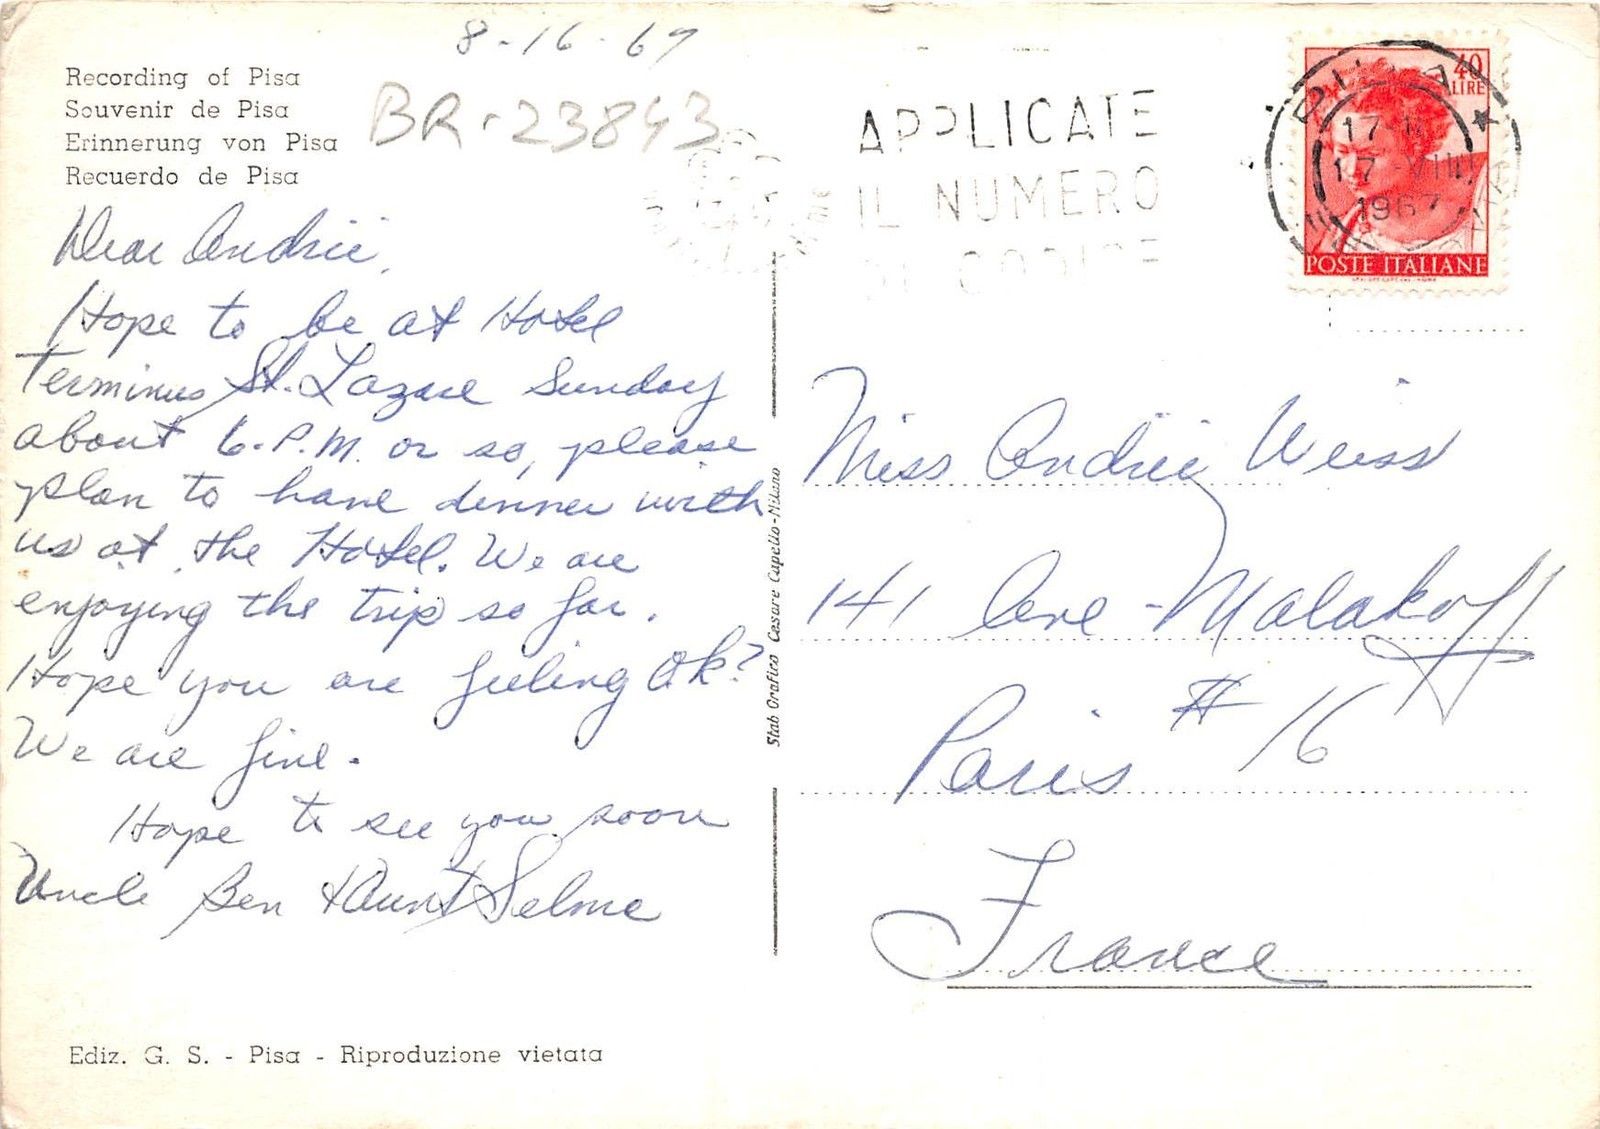 8-16-67
Recording of Pisa
Souvenir de Pisa
Erinnerung von Pisa
Recuerdo de Pisa
BR-23843
APPLICATE
IL NUMERO
DI CODICE
40
LIRE
17-VIII
1967
POSTE ITALIANE
Dear Andrie,
Hope to be at Hotel
Terminus St. Lazare Sunday
about 6-P.M. or so, please
plan to have dinner with
us at the Hotel. We are
enjoying the trip so far.
Hope you are feeling Ok?
We are fine.
Hope to see you soon
Uncle Ben & Aunt Selma
Stab Grafico Cesare Capello-Milano
Miss Andrie Weiss
141 Ave - Malakoff
Paris # 16
France
Ediz. G. S. - Pisa - Riproduzione vietata